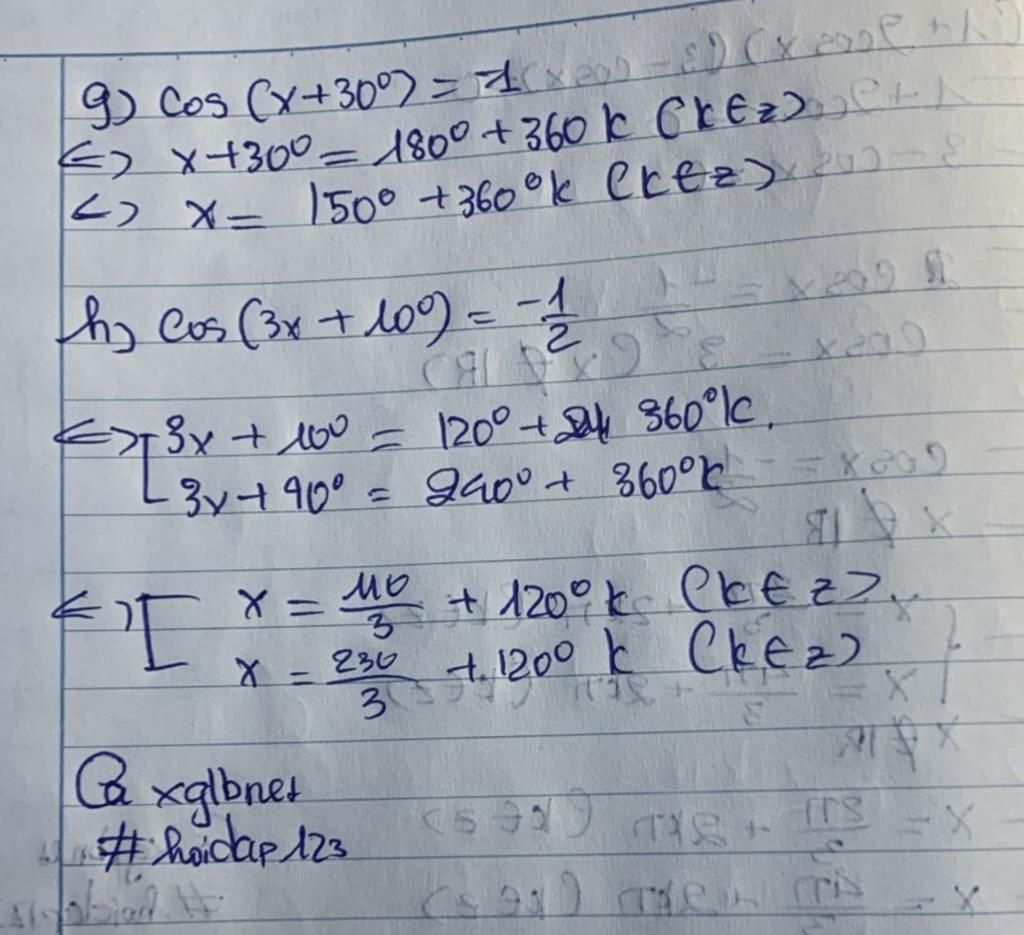 g) cos (x+30°) = -1
<=> x+30° = 180° + 360 k (k∈z)
<=> x = 150° + 360°k (k∈z)
h) cos (3x + 10°) = -1/2
<=> [ 3x + 10° = 120° + 360°k.
3x + 10° = 240° + 360°k
<=> [ x = 110/3 + 120°k (k∈z).
x = 230/3 + 120° k (k∈z)
@ xglbnet
# hoidap123